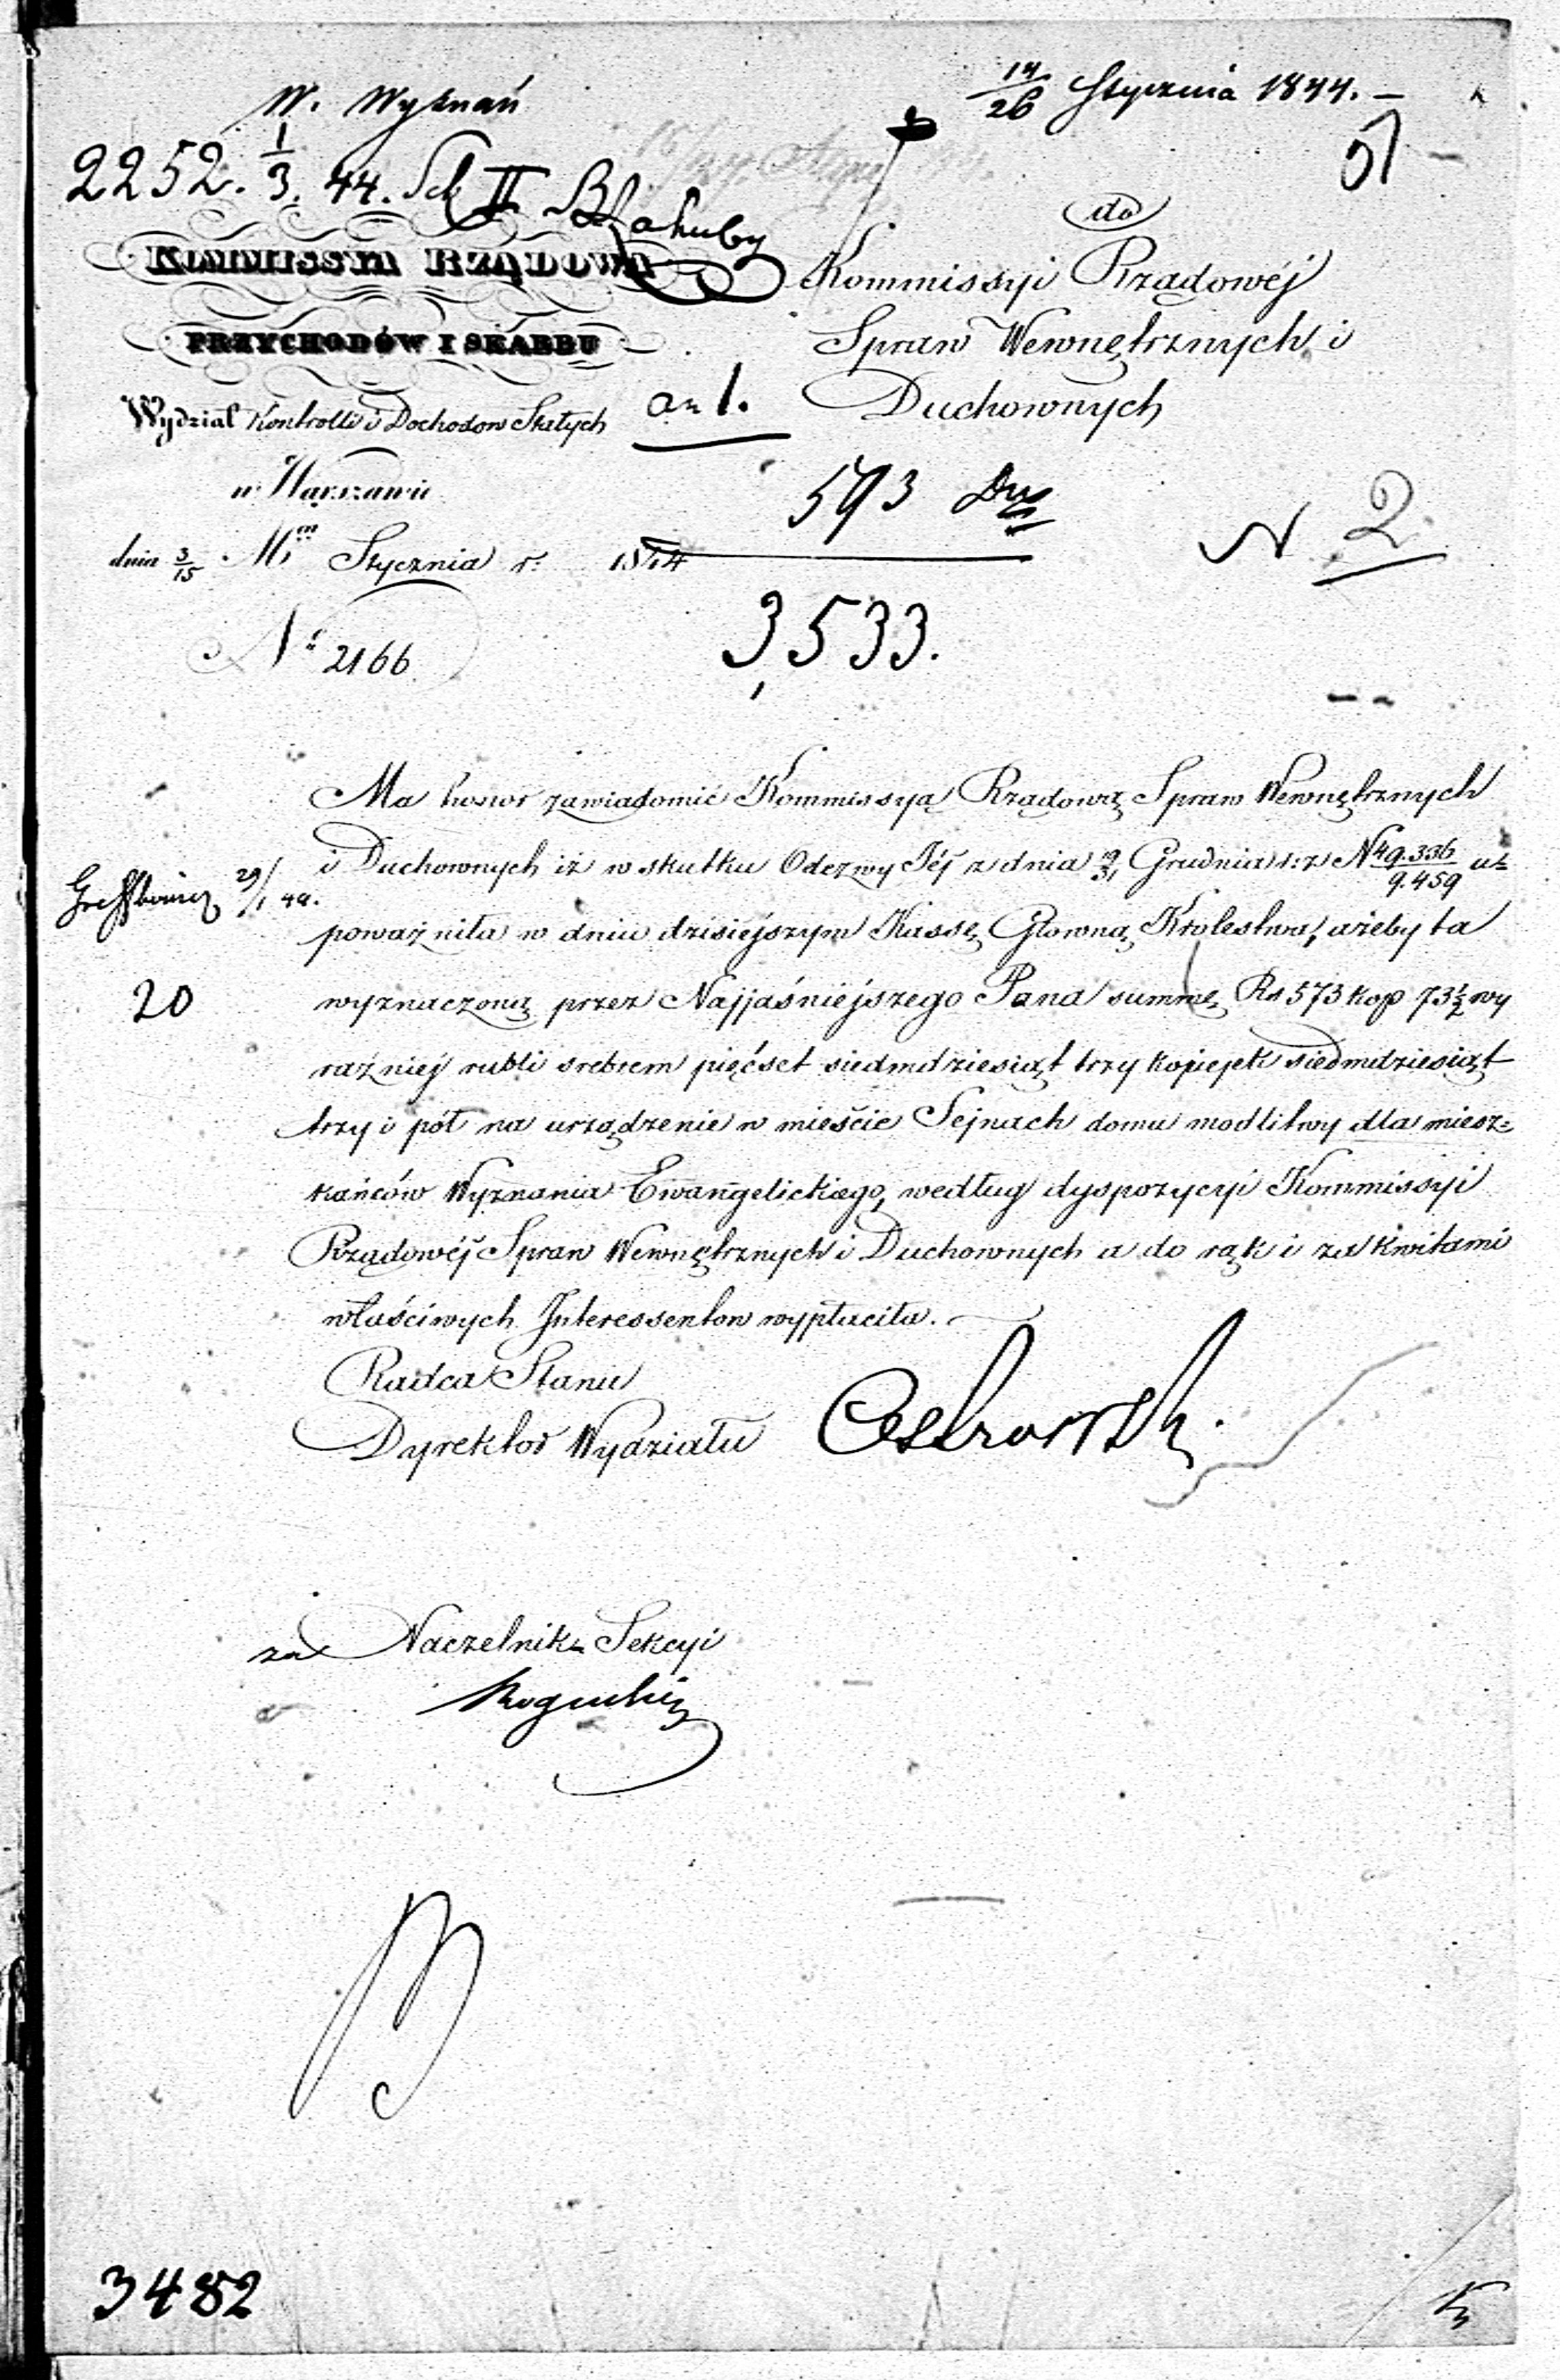 W. Wyznań
14/26 Stycznia 1844. —
2252. 1/3. 44. II
KOMMISSYA RZĄDOWA
PRZYCHODÓW I SKARBU
Wydział Kontrolli i Dochodow Stałych
w Warszawie
dnia 3/15 Mca Stycznia r. 1844
No 2166
do
Kommissyi Rządowéj
Spraw Wewnętrznych i
Duchownych
an 1.
593
3,533.
N 2
Ma honor zawiadomić Kommissyą Rządową Spraw Wewnętrznych
i Duchownych iż w skutku Odezwy Jéj z dnia Grudnia r: z N 49.336/9.459 u=
poważniła w dniu dzisiejszym Kassę Głowną Krolestwa, ażeby ta
wyznaczoną przez Najjaśniejszego Pana summę Rs 573 kop 73½ wy
raźniej rubli srebrem pięćset siedmdziesiąt trzy kopiejek siedmdziesiąt
trzy i pół na urządzenie w mieście Sejnach domu modlitwy dla miesz=
kańców Wyznania Ewangelickiego, według dyspozycyi Kommissyi
Rządowéj Spraw Wewnętrznych i Duchownych a do rąk i za kwitami
właściwych Interessentow wypłaciła.
29/1 44.
20
Radca Stanu
Dyrektor Wydziału
Ostrowski
za Naczelnika Sekcyi
3482